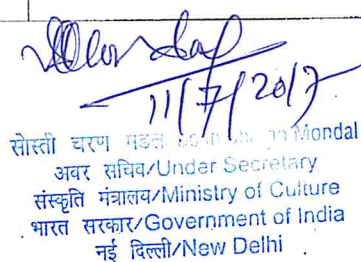 11/7/2017
सोस्ती चरण मंडल Mondal
अवर सचिव/Under Secretary
संस्कृति मंत्रालय/Ministry of Culture
भारत सरकार/Government of India
नई दिल्ली/New Delhi